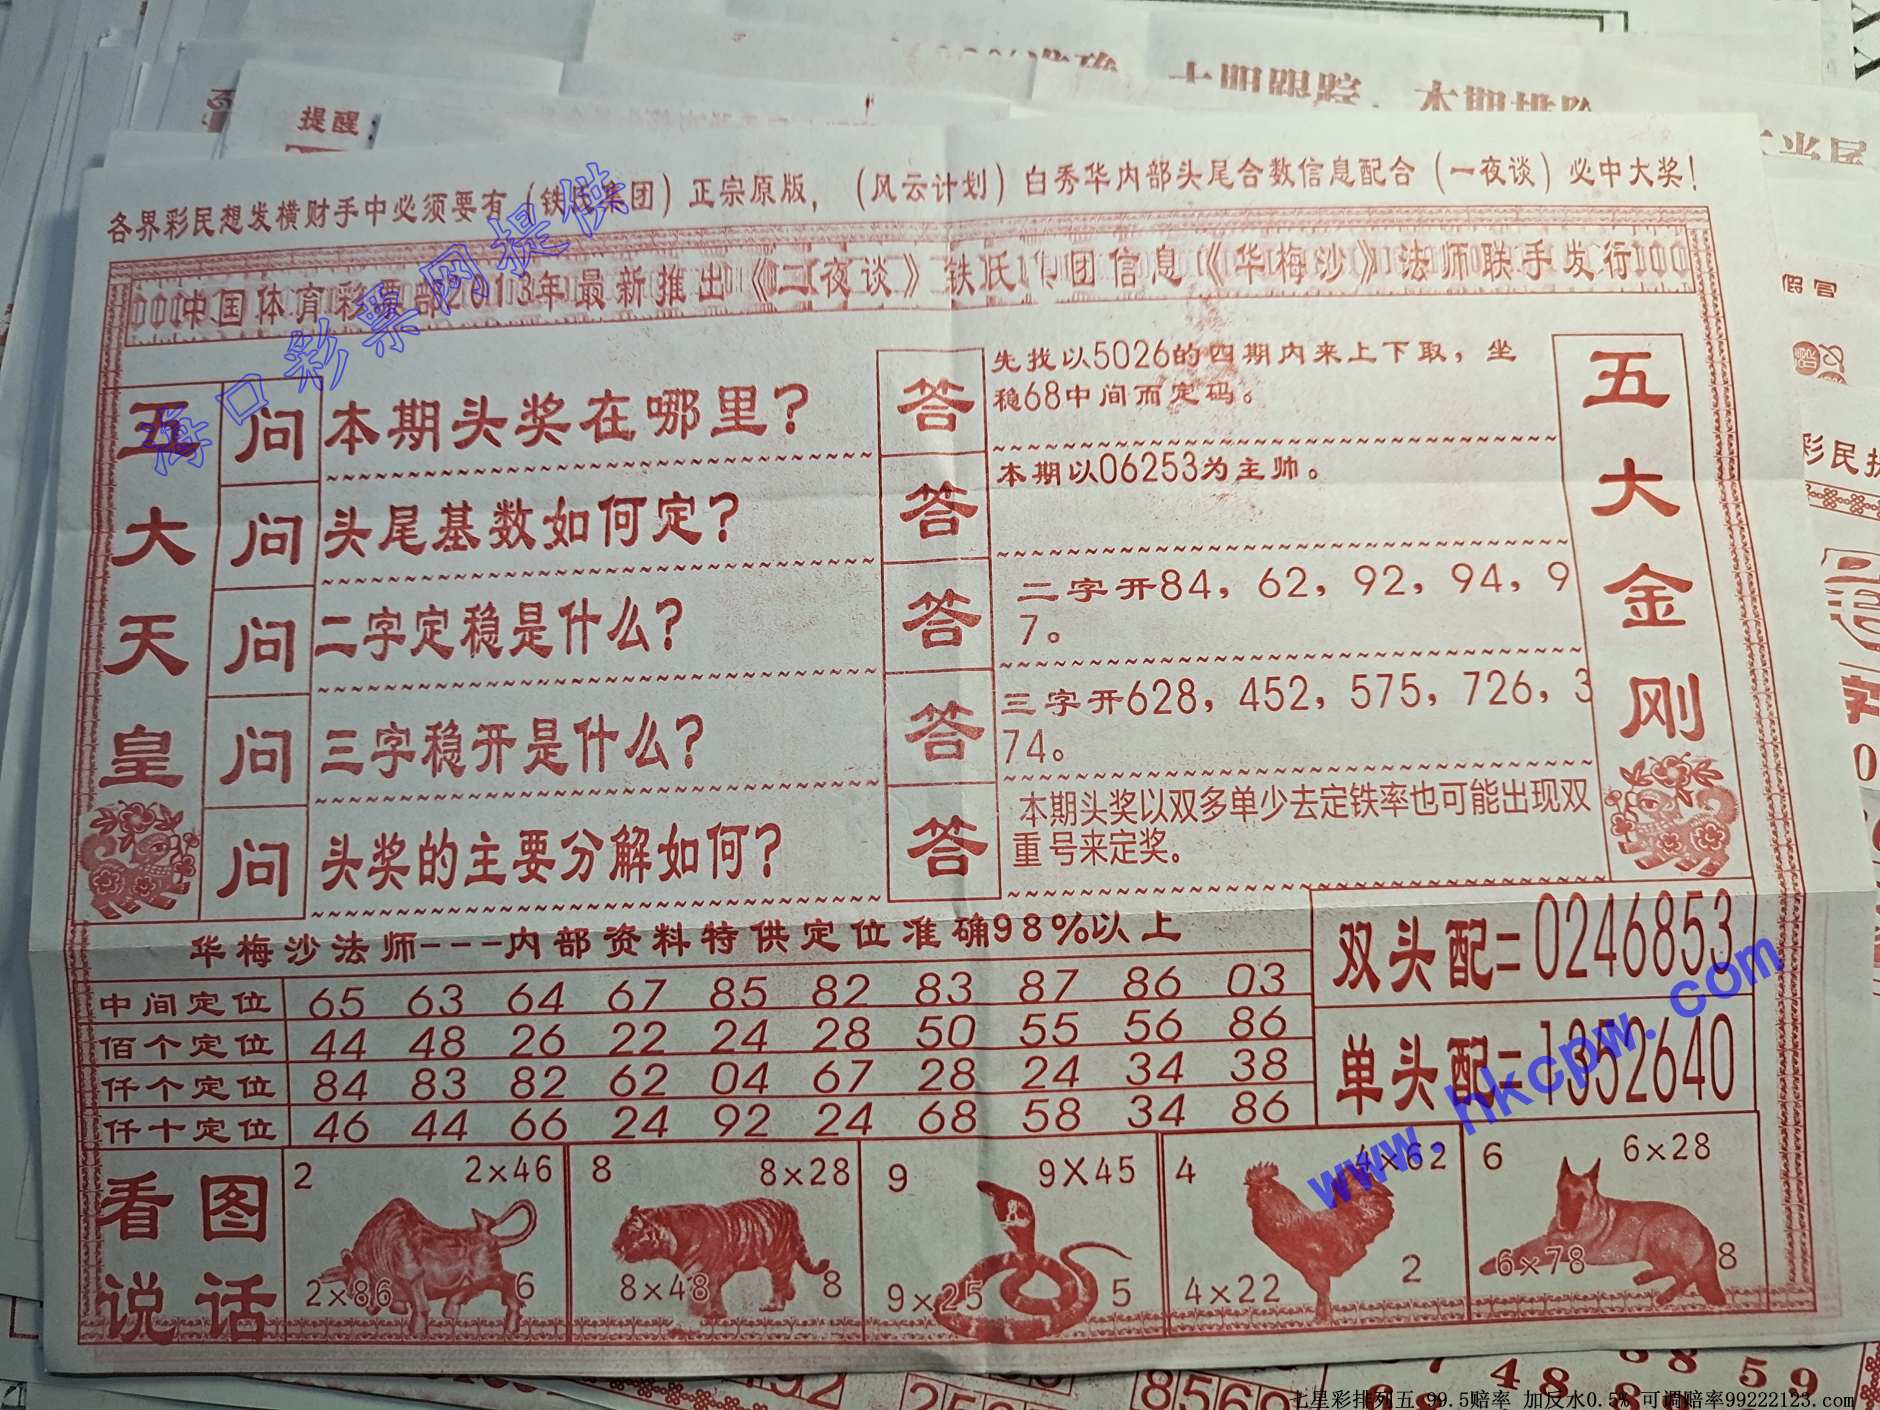 提醒：
各界彩民想发横财手中必须要有（铁氏集团）正宗原版，（风云计划）白秀华内部头尾合数信息配合（一夜谈）必中大奖！
中国体育彩票部2013年最新推出《二夜谈》铁氏集团信息《华梅沙》法师联手发行
假冒
五大天皇
问 本期头奖在哪里？
答 先找以5026的四期内来上下取，坐
稳68中间而定码。
问 头尾基数如何定？
答 本期以06253为主帅。
问 二字定稳是什么？
答 二字开84，62，92，94，9
7。
问 三字稳开是什么？
答 三字开628，452，575，726，3
74。
问 头奖的主要分解如何？
答 本期头奖以双多单少去定铁率也可能出现双
重号来定奖。
五大金刚
华梅沙法师---内部资料特供定位准确98%以上
中间定位 65 63 64 67 85 82 83 87 86 03
佰个定位 44 48 26 22 24 28 50 55 56 86
仟个定位 84 83 82 62 04 67 28 24 34 38
仟十定位 46 44 66 24 92 24 68 58 34 86
双头配=0246853
单头配=1352640
看图
说话
2 2×46
2×86 6
8 8×28
8×48 8
9 9×45
9×25 5
4 4×62
4×22 2
6 6×28
6×78 8
海口彩票网提供
www.hkcpw.com
七星彩排列五 99.5赔率 加反水0.5% 可调赔率99222123.com